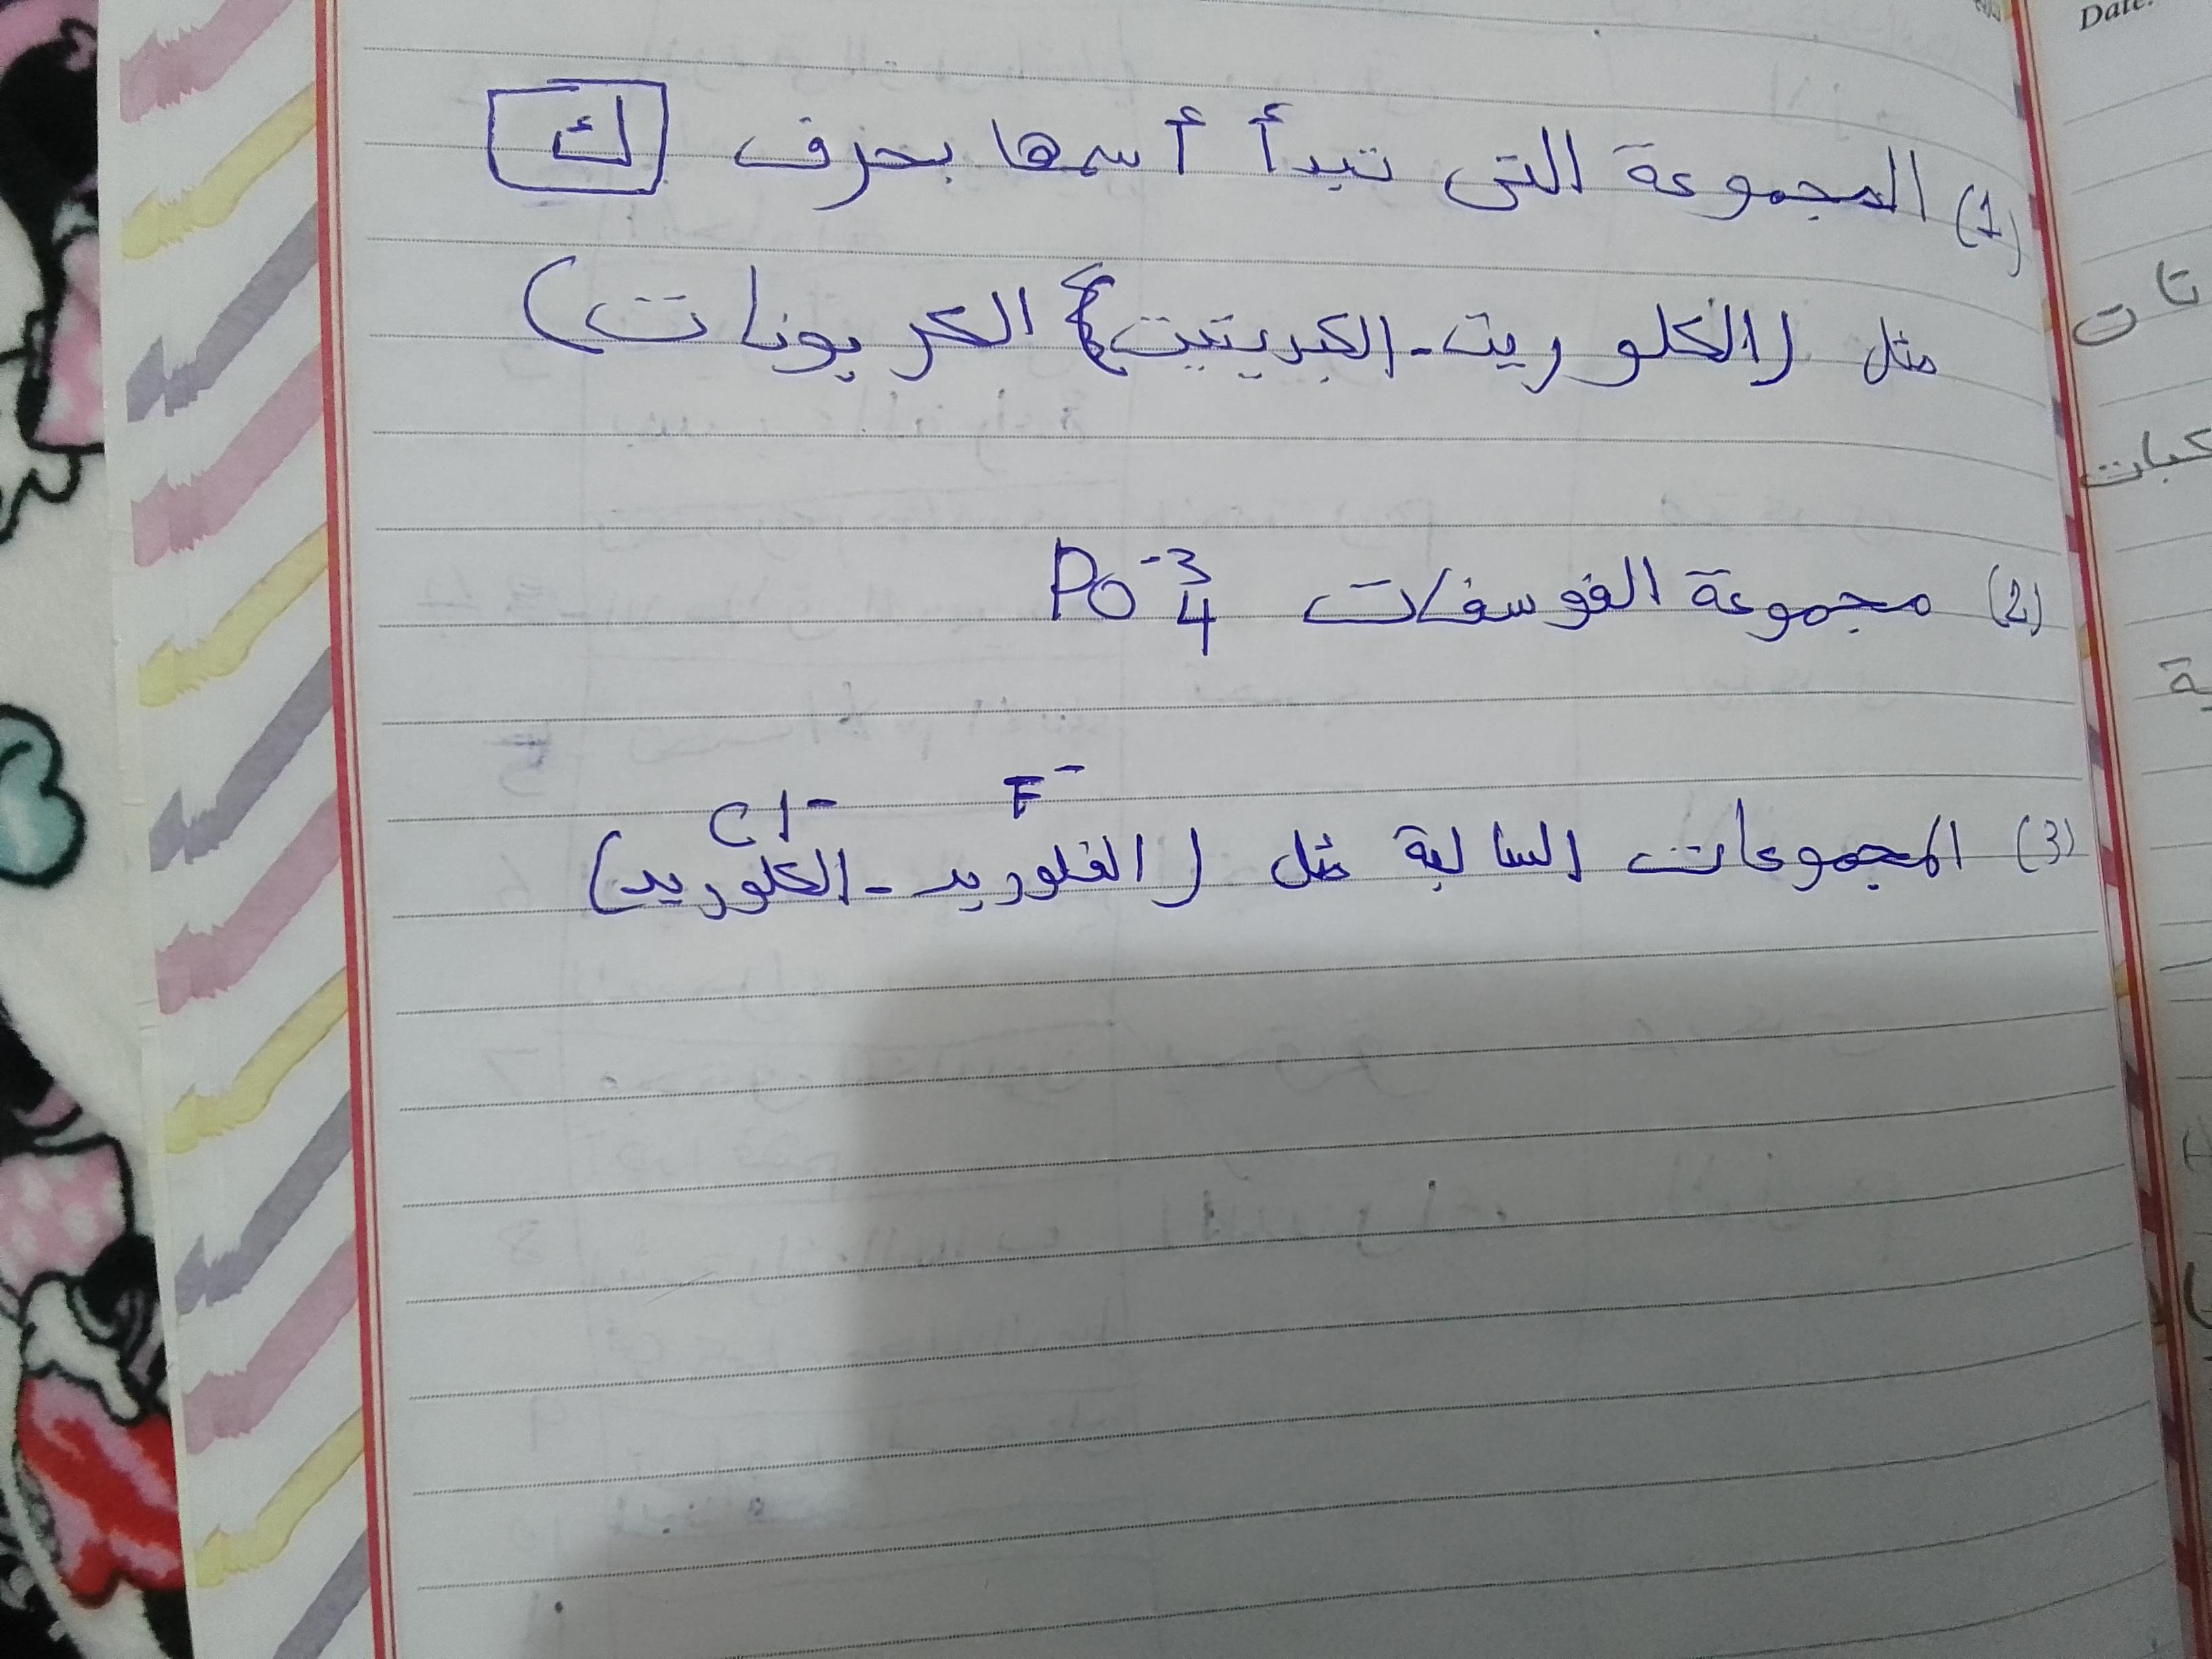 Date.
(1) المجموعة التى تبدأ أسمها بحرف ك
مثل (الكلوريت - الكبريتيت } الكربونات)
(2) مجموعة الفوسفات Po4-3
F- Cl-
(3) المجموعات السالبة مثل (الفلوريد - الكلوريد)